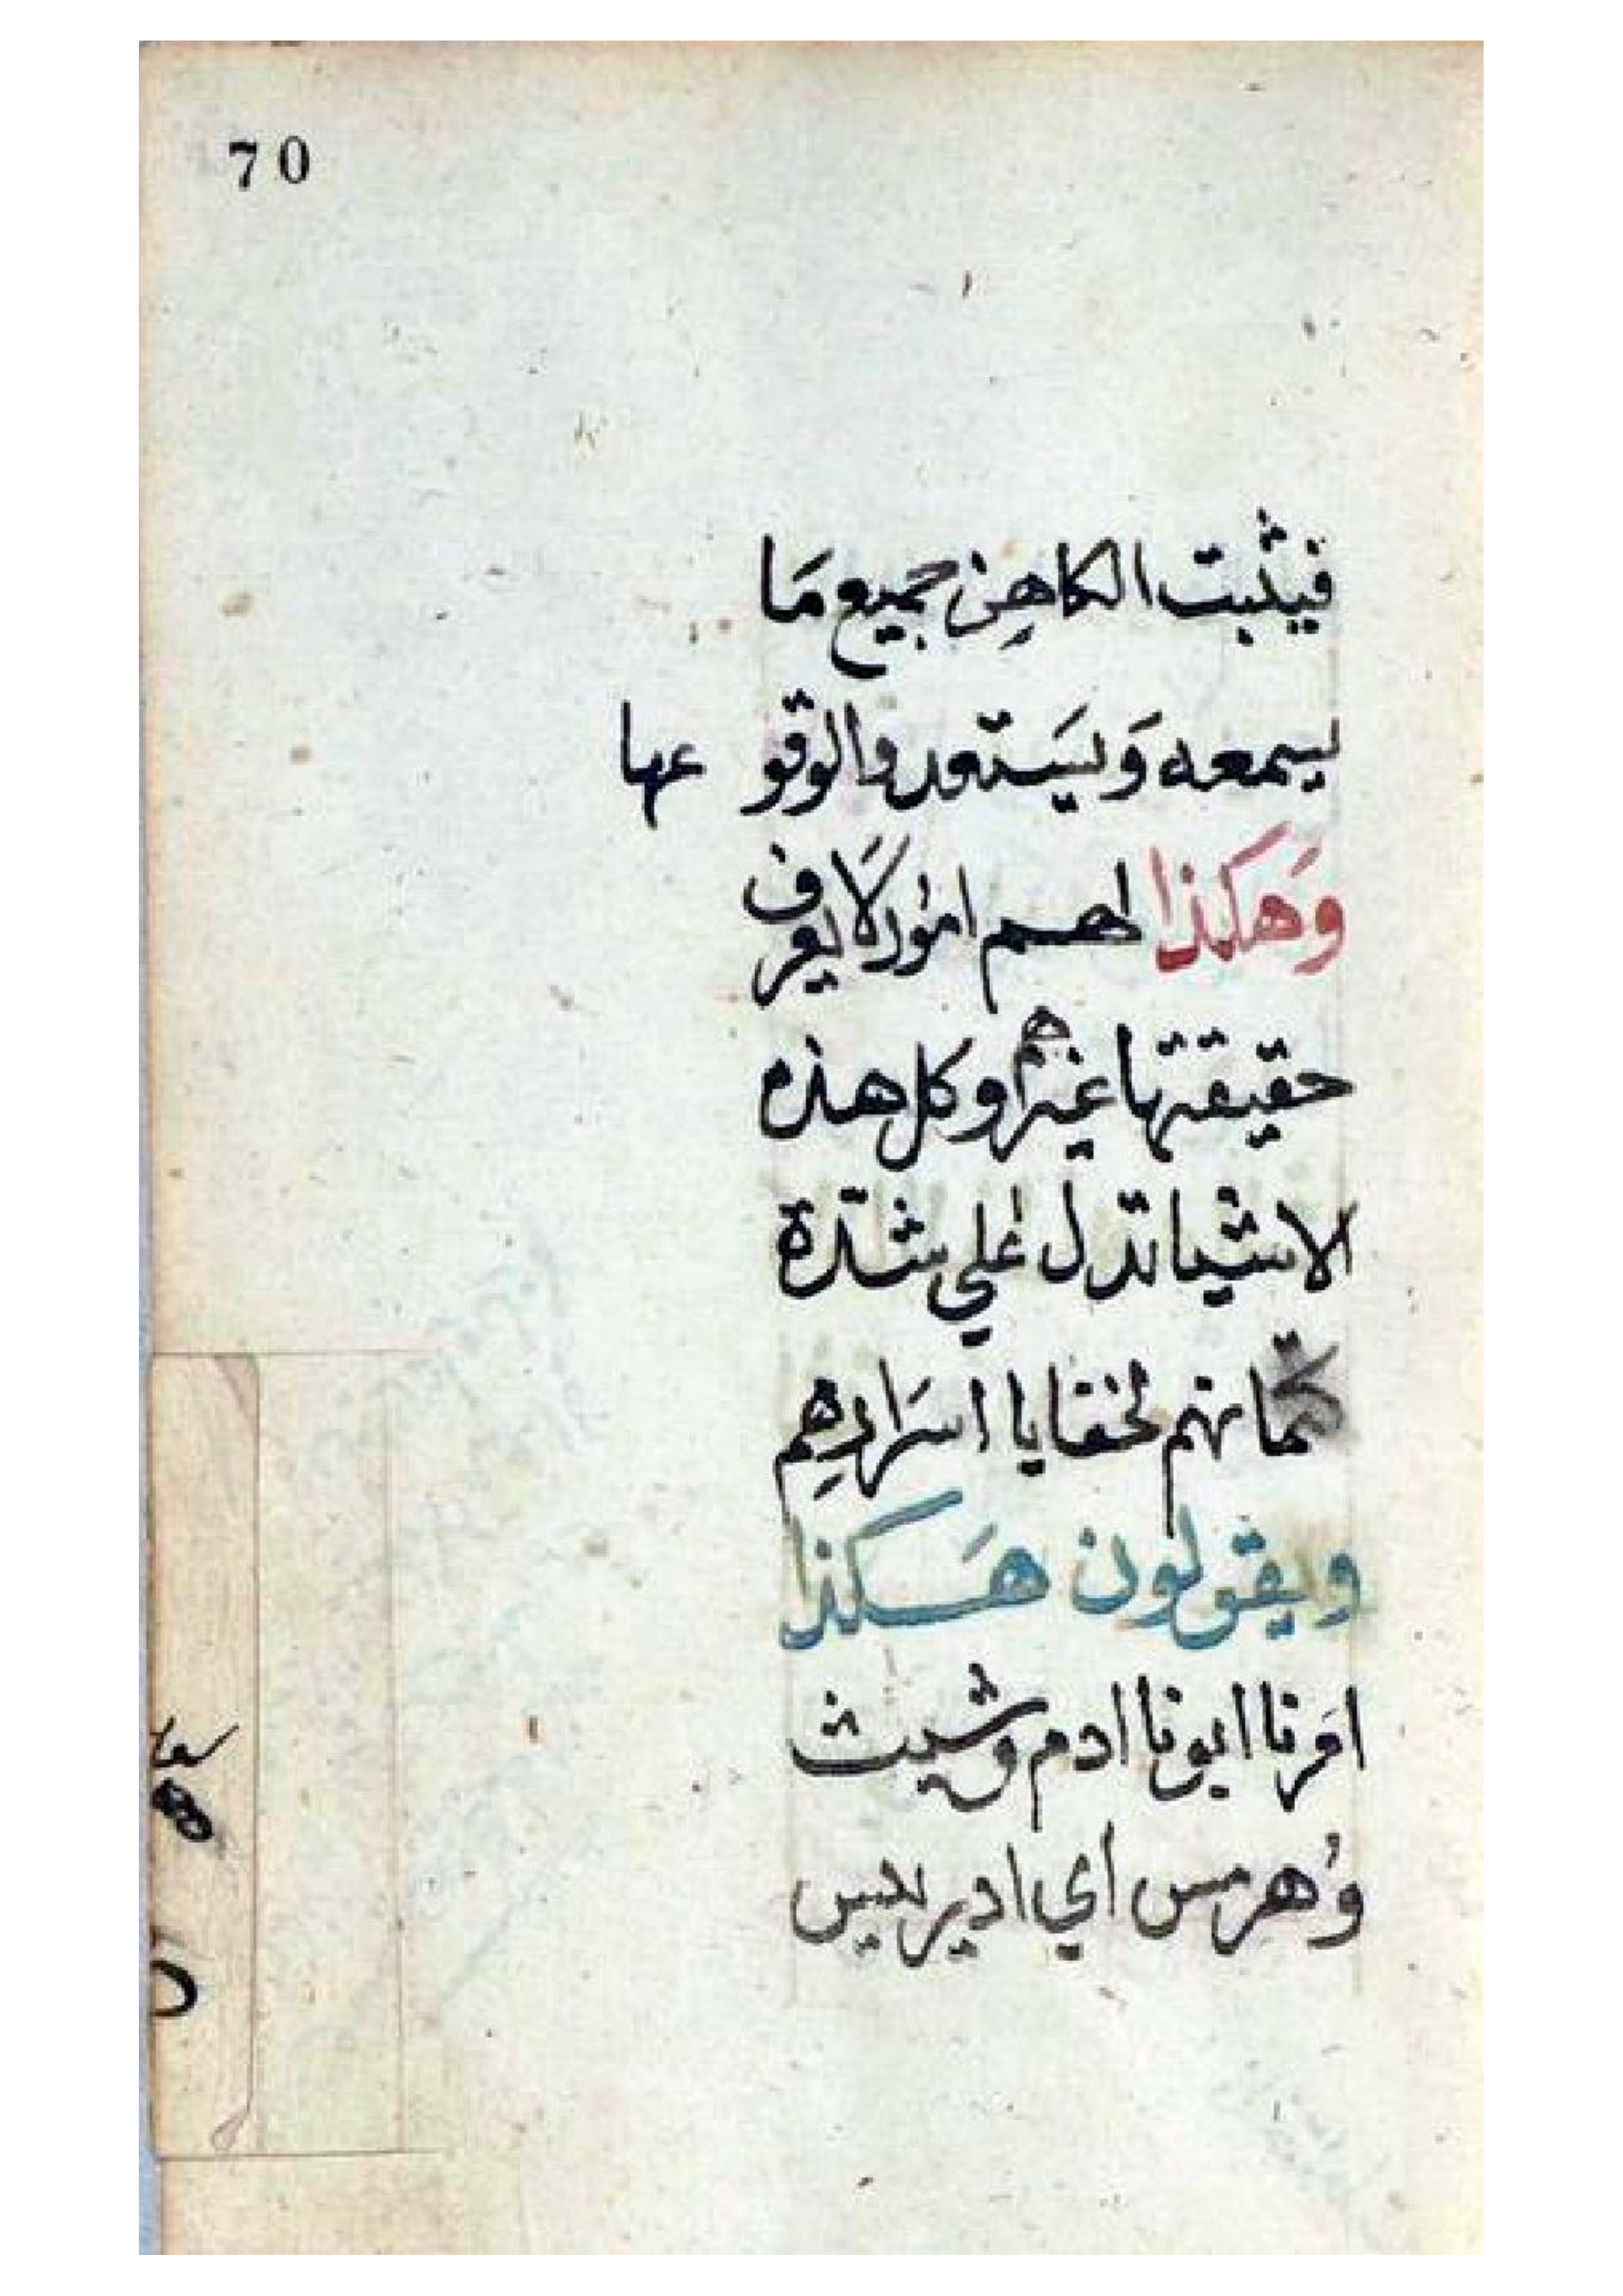 70
فيثبت الكاهِن جميع مَا
يسمعه وَيسَتعدوا لوقو عها
وَهكذا لهم امور لَا يعرف
حقيقتها غيرهم وكل هذه
الاشيا تدل علي شدة
كتمانهم لخفايا اسرَارهِم
ويقولون هَكذا
امَرنا ابونا ادم وشيث
وُهرمس اي ادريس